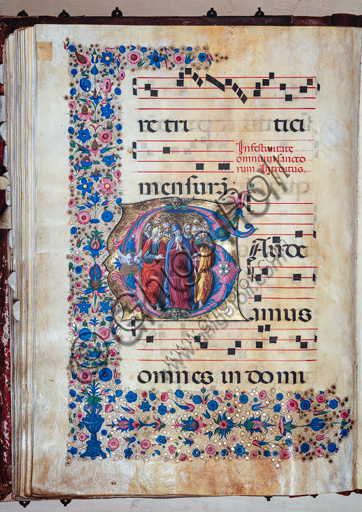 re tri tici
In festivitate
omnium sancto
rum Introitus.
mensuri
G Aude
amus
omnes in domi